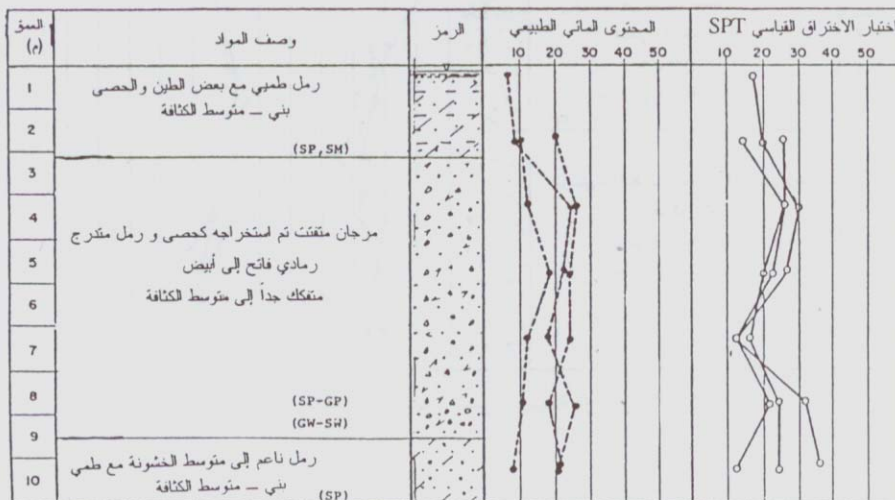 العمق (م)
وصف المواد
الرمز
المحتوى المائي الطبيعي
10 20 30 40 50
اختبار الاختراق القياسي SPT
10 20 30 40 50
1
2
3
4
5
6
7
8
9
10
رمل طميي مع بعض الطين والحصى
بني – متوسط الكثافة
(SP,SM)
مرجان متفتت تم استخراجه كحصى و رمل متدرج
رمادي فاتح إلى أبيض
متفكك جداً إلى متوسط الكثافة
(SP-GP)
(GW-SW)
رمل ناعم إلى متوسط الخشونة مع طمي
بني – متوسط الكثافة
(SP)